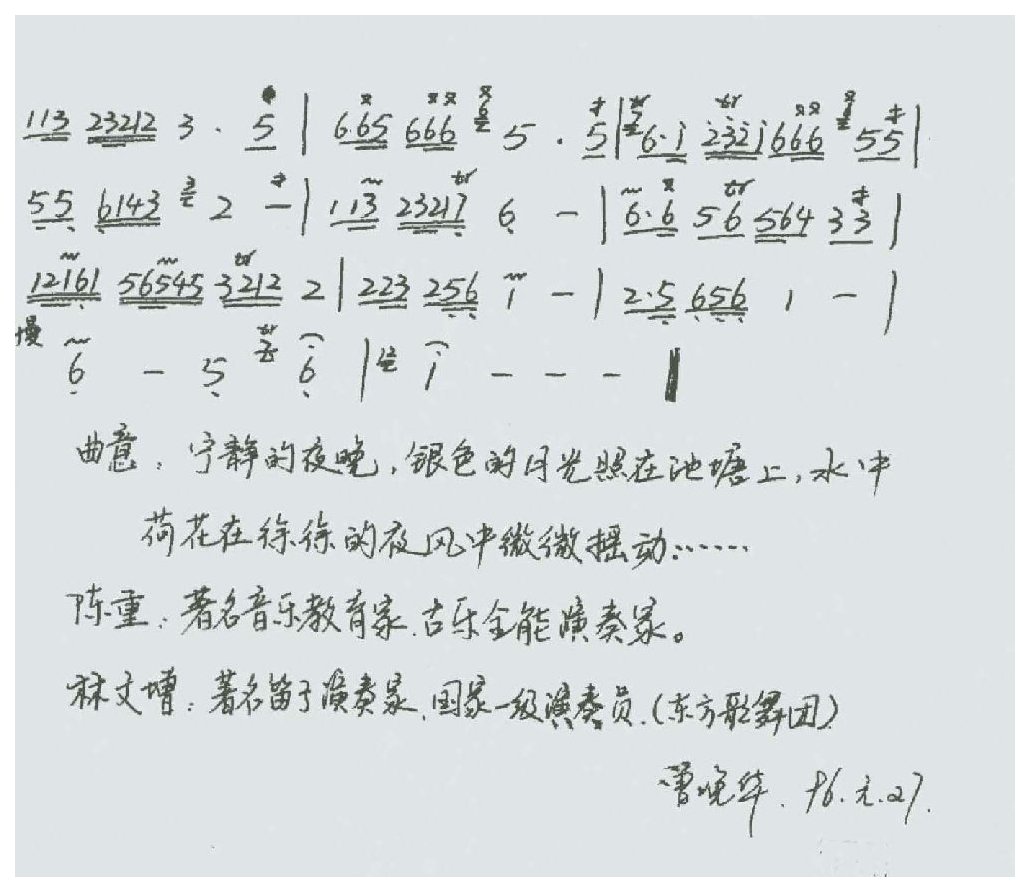 113 23212 3 · 5 | 665 666 5 · 5 | 6·i 2321 666 55 |
55 6143 2 - | 113 23217 6 - | 6·6 56 564 33 |
12161 56545 3212 2 | 223 256 1 - | 2·5 656 1 - |
慢 6 - 5 6 | 1 - - - ‖
曲意:宁静的夜晚,银色的月光照在池塘上,水中
荷花在徐徐的夜风中微微摇动……
陈重:著名音乐教育家.古乐全能演奏家。
林文增:著名笛子演奏家.国家一级演奏员.(东方歌舞团)
曾晚华. 96.元.27.